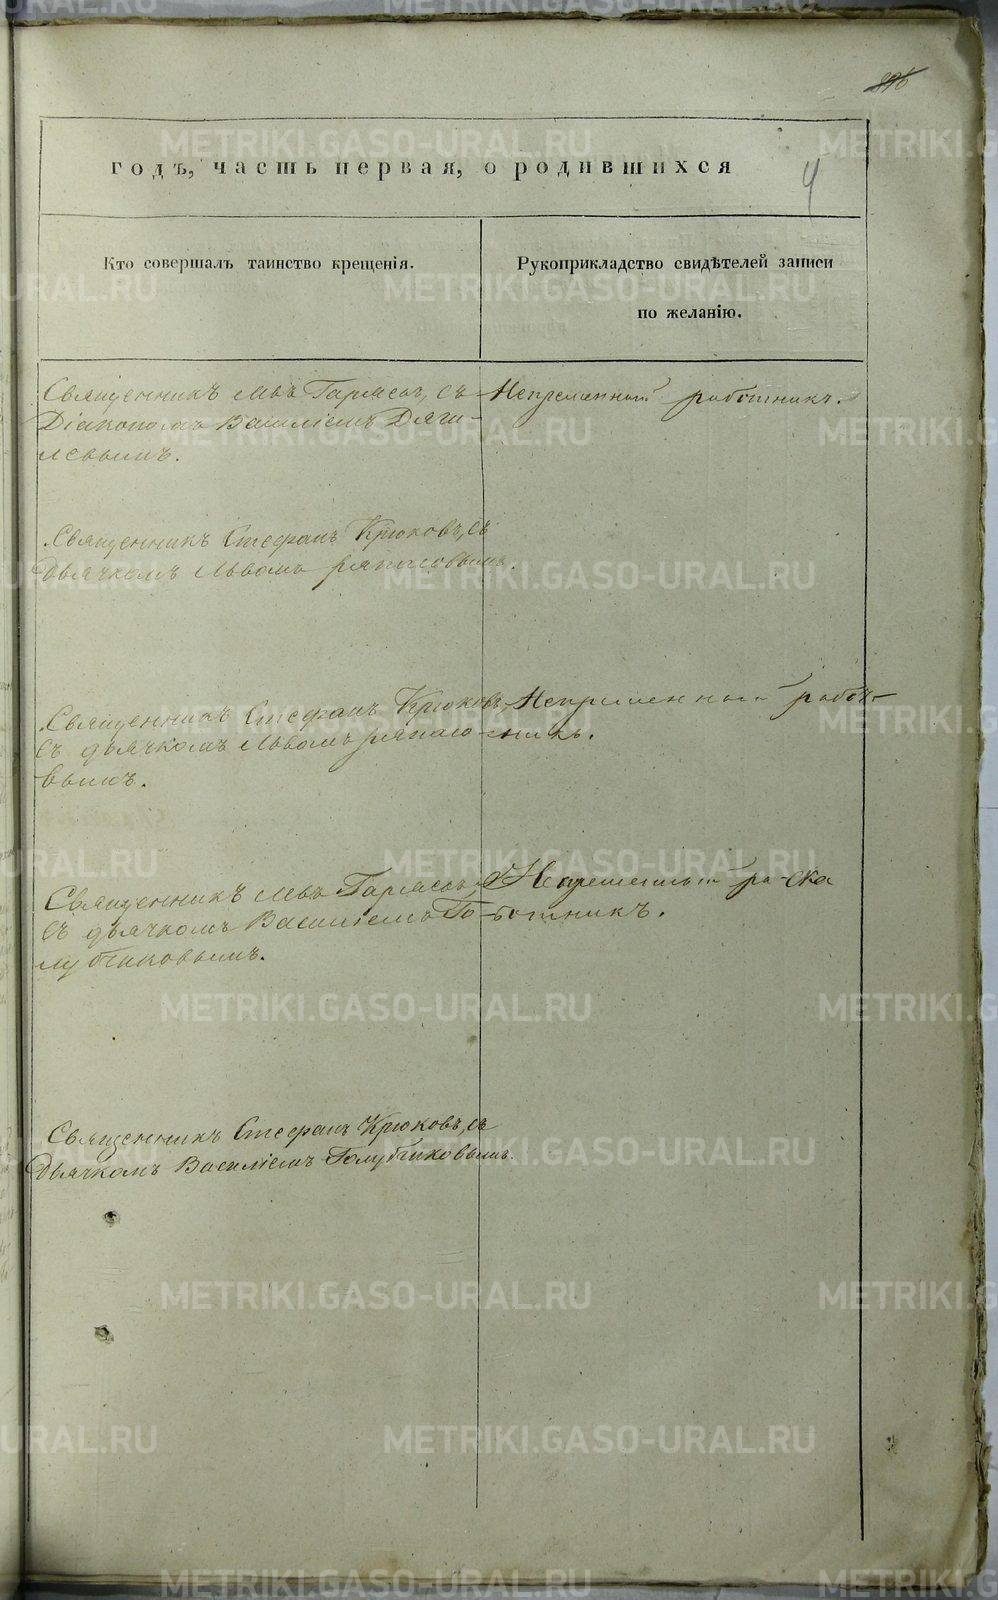 896
годъ, часть первая, о родившихся
4
Кто совершалъ таинство крещенія.
Рукоприкладство свидѣтелей записи
по желанію.
Священникъ Левъ Гарясовъ, съ
Діакономъ Василіемъ Дяги-
левымъ.
Непременной работникъ.
Священникъ Стефанъ Крюковъ, съ
Дьячкомъ Львомъ
Священникъ Стефанъ Крюковъ,
съ дьячкомъ Львомъ
вымъ.
Непременной работ-
никъ.
Священникъ Левъ Гарясовъ,
съ дьячкомъ Василіемъ Го-
лубчиковымъ.
ботникъ.
Священникъ Стефанъ Крюковъ, съ
Дьячкомъ Василіемъ Голубчиковымъ.
METRIKI.GASO-URAL.RU